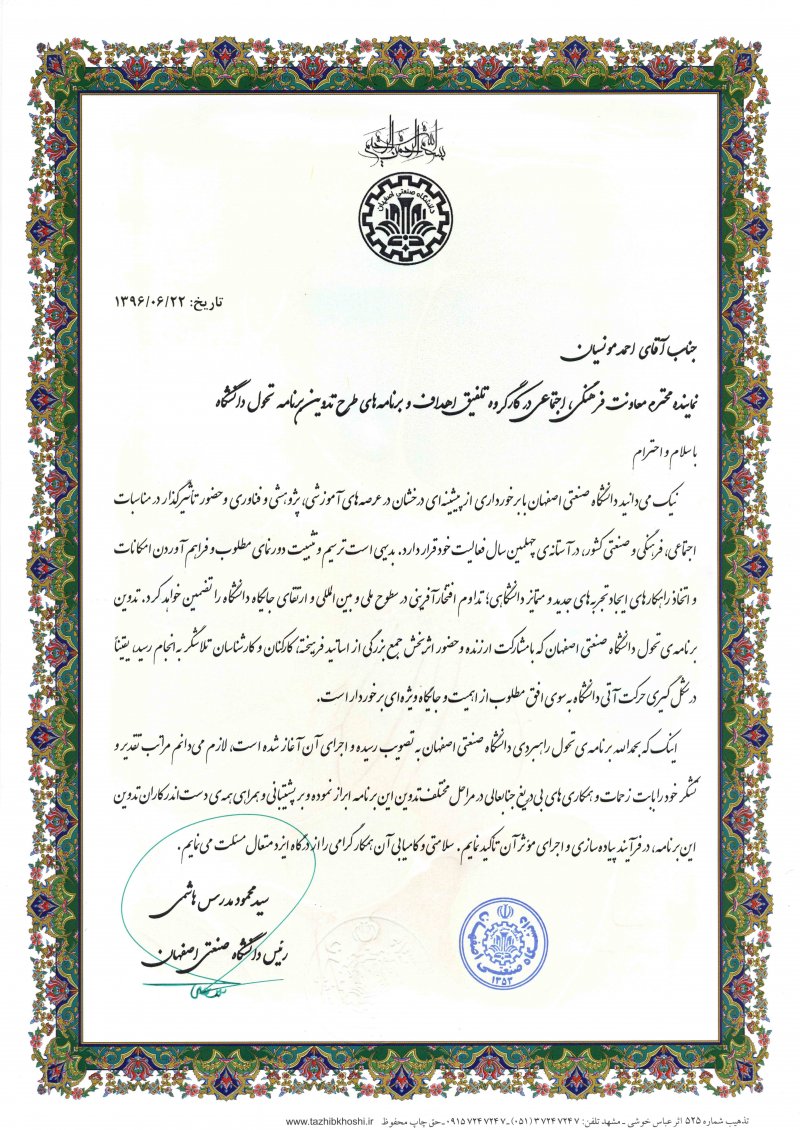 بسم الله الرحمن الرحیم
دانشگاه صنعتی اصفهان
تاریخ: ۱۳۹۶/۰۶/۲۲
جناب آقای احمد مونسیان
نماینده محترم معاونت فرهنگی، اجتماعی در کارگروه تلفیق اهداف و برنامه های طرح تدوین برنامه تحول دانشگاه
با سلام و احترام
نیک می‌دانید دانشگاه صنعتی اصفهان با برخورداری از پیشینه‌ای درخشان در عرصه‌های آموزشی، پژوهشی و فناوری و حضور تأثیرگذار در مناسبات
اجتماعی، فرهنگی و صنعتی کشور، در آستانه‌ی چهلمین سال فعالیت خود قرار دارد. بدیهی است ترسیم و تثبیت دورنمای مطلوب و فراهم آوردن امکانات
و اتخاذ راهکارهای ایجاد تجربه‌های جدید و متمایز دانشگاهی؛ تداوم افتخارآفرینی در سطوح ملی و بین المللی و ارتقای جایگاه دانشگاه را تضمین خواهد کرد. تدوین
برنامه‌ی تحول دانشگاه صنعتی اصفهان که با مشارکت ارزنده و حضور اثربخش جمع بزرگی از اساتید فرهیخته، کارکنان و کارشناسان تلاشگر به انجام رسید، یقیناً
در شکل گیری حرکت آتی دانشگاه به سوی افق مطلوب از اهمیت و جایگاه ویژه‌ای برخوردار است.
اینک که بحمدالله برنامه‌ی تحول راهبردی دانشگاه صنعتی اصفهان به تصویب رسیده و اجرای آن آغاز شده است، لازم می‌دانم مراتب تقدیر و
تشکر خود را بابت زحمات و همکاری های بی‌دریغ جنابعالی در مراحل مختلف تدوین این برنامه ابراز نموده و بر پشتیبانی و همراهی همه‌ی دست اندرکاران تدوین
این برنامه، در فرآیند پیاده سازی و اجرای مؤثر آن تاکید نمایم. سلامتی و کامیابی آن همکار گرامی را از درگاه ایزد متعال مسئلت می‌نمایم.
سید محمود مدرس هاشمی
رئیس دانشگاه صنعتی اصفهان
دانشگاه صنعتی اصفهان
۱۳۵۳
تذهیب شماره ۵۲۵ اثر عباس خوشی ـ مشهد تلفن: ۳۷۲۴۷۲۴۷ (۰۵۱) ـ ۰۹۱۵۷۲۴۷۲۴۷ـ حق چاپ محفوظ www.tazhibkhoshi.ir